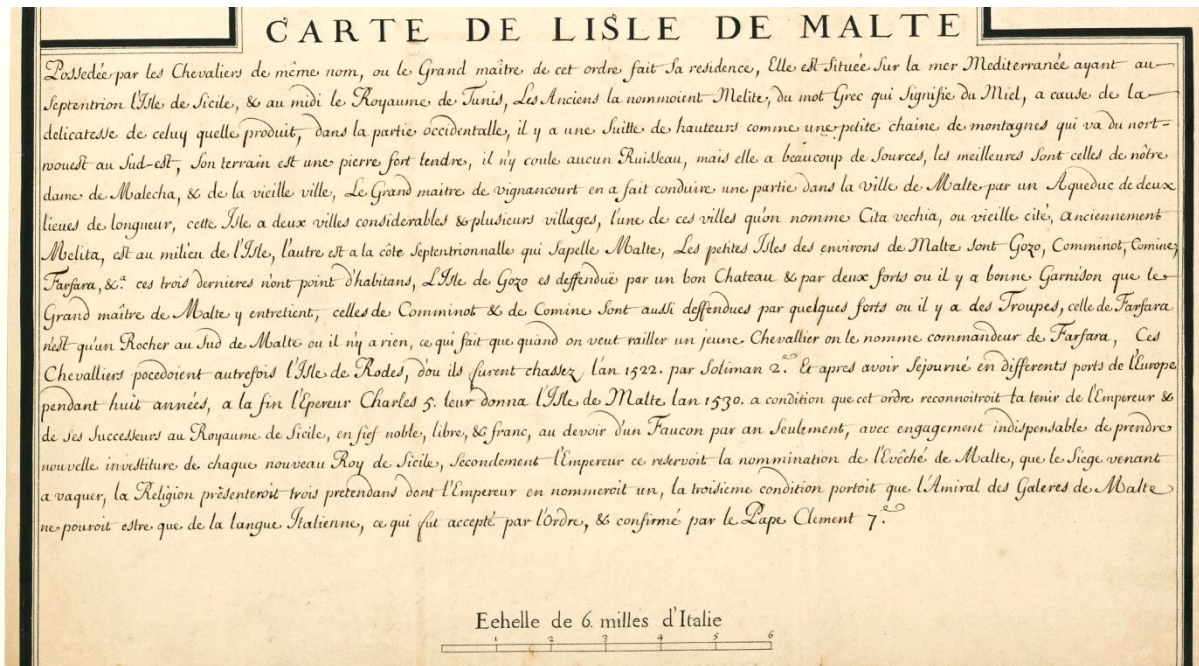 CARTE DE LISLE DE MALTE
Possedée par les Chevaliers de même nom, ou le Grand maître de cet ordre fait sa residence, Elle est Située Sur la mer Mediterranée ayant au
Septentrion l'Isle de Sicile, & au midi le Royaume de Tunis, Les Anciens la nommoient Melite, du mot Grec qui Signifie du Miel, a cause de la
delicatesse de celuy quelle produit, dans la partie occidentalle, il y a une Suitte de hauteurs comme une petite chaine de montagnes qui va du nort-
wouest au Sud-est, Son terrain est une pierre fort tendre, il n'y coule aucun Ruisseau, mais elle a beaucoup de Sources, les meilleures Sont celles de nôtre
dame de Malecha, & de la vieille ville, Le Grand maitre de vignancourt en a fait conduire une partie dans la ville de Malte par un Aqueduc de deux
lieues de longueur, cette Isle a deux villes considerables & plusieurs villages, l'une de ces villes qu'on nomme Cita vechia, ou vieille cité, anciennement
Melita, est au milieu de l'Isle, l'autre est a la côte Septentrionnalle qui Sapelle Malte, Les petites Isles des environs de Malte Sont Gozo, Comminot, Comine,
Farfara, &.a ces trois dernieres n'ont point d'habitans, L'Isle de Gozo es deffenduë par un bon Chateau & par deux forts ou il y a bonne Garnison que le
Grand maître de Malte y entretient, celles de Comminot & de Comine Sont aussi deffendues par quelques forts ou il y a des Troupes, celle de Farfara
n'est qu'un Rocher au Sud de Malte ou il n'y a rien, ce qui fait que quand on veut railler un jeune Chevallier on le nomme commandeur de Farfara, Ces
Chevalliers pocedoient autrefois l'Isle de Rodes, d'ou ils furent chassez l'an 1522. par Soliman 2.e Et apres avoir Sejourné en differents ports de l'Europe
pendant huit années, a la fin l'Epereur Charles 5. leur donna l'Isle de Malte lan 1530. a condition que cet ordre reconnoitroit la tenir de l'Empereur &
de ses Successeurs au Royaume de Sicile, en fief noble, libre, & franc, au devoir d'un Faucon par an Seulement, avec engagement indispensable de prendre
nouvelle investiture de chaque nouveau Roy de Sicile, Secondement l'Empereur ce reservoit la nommination de l'Evêché de Malte, que le Siège venant
a vaquer, la Religion prèsenteroit trois pretendans dont l'Empereur en nommeroit un, la troisieme condition portoit que l'Amiral des Galeres de Malte
ne pouroit estre que de la langue Italienne, ce qui fût accepté par l'Ordre, & confirmé par le Pape Clement 7.e
Echelle de 6. milles d'Italie
1 2 3 4 5 6